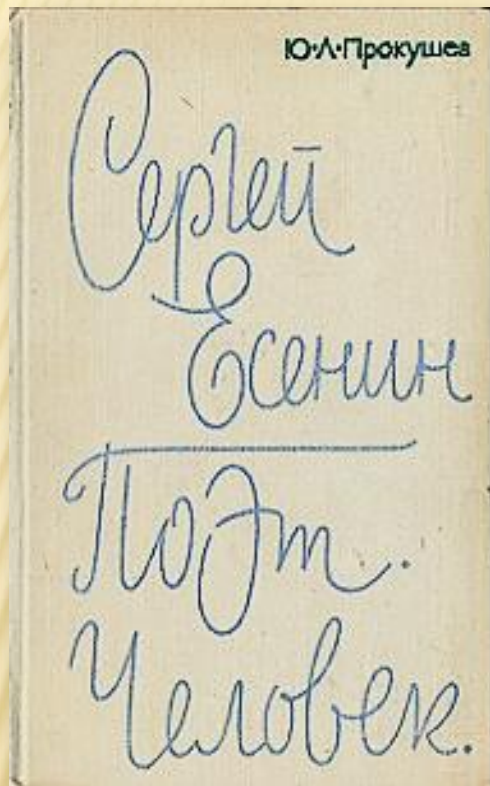 Ю·Л·Прокушев
Сергей
Есенин
Поэт.
Человек.